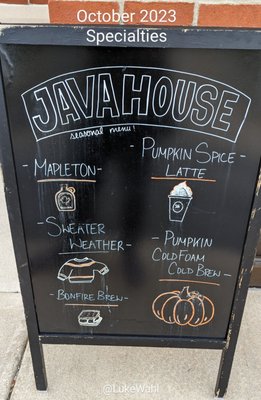 October 2023
Specialties
JAVA HOUSE
seasonal menu!
- MAPLETON -
- PUMPKIN SPICE -
LATTE
- SWEATER
WEATHER -
- PUMPKIN
COLD FOAM
COLD BREW -
- BONFIRE BREW -
@LukeWahl